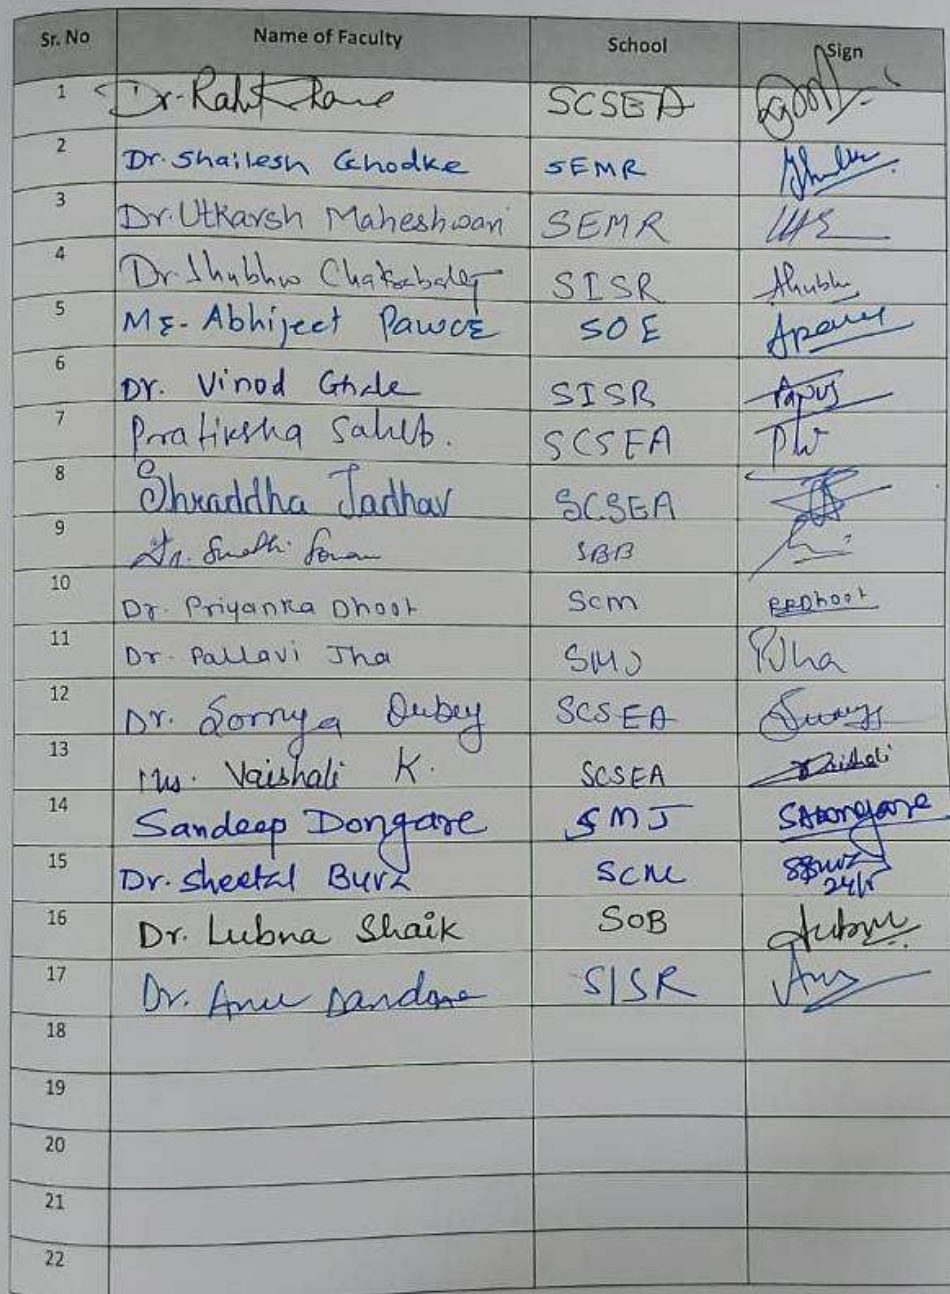 Sr. No Name of Faculty School Sign
1 Dr. SCSEA
2 Dr. Shailesh Ghodke SEMR
3 Dr. Utkarsh Maheshwari SEMR
4 Dr. Shubhro SISR Shubh
5 Mr. Abhijeet Pawar SOE
6 Dr. Vinod SISR
7 Pratiksha SCSEA
8 Shraddha Jadhav SCSEA
9 Dr. SBB
10 Dr. Priyanka Dhoot SCM PRDhoot
11 Dr. Pallavi Jha SMJ PJha
12 Dr. Somya Dubey SCSEA
13 Ms. Vaishali K. SCSEA Vaishali
14 Sandeep Dongare SMJ SADongare
15 Dr. Sheetal Burz SCM
16 Dr. Lubna Shaik SOB Lubna
17 Dr. Anu SISR Anu
18
19
20
21
22